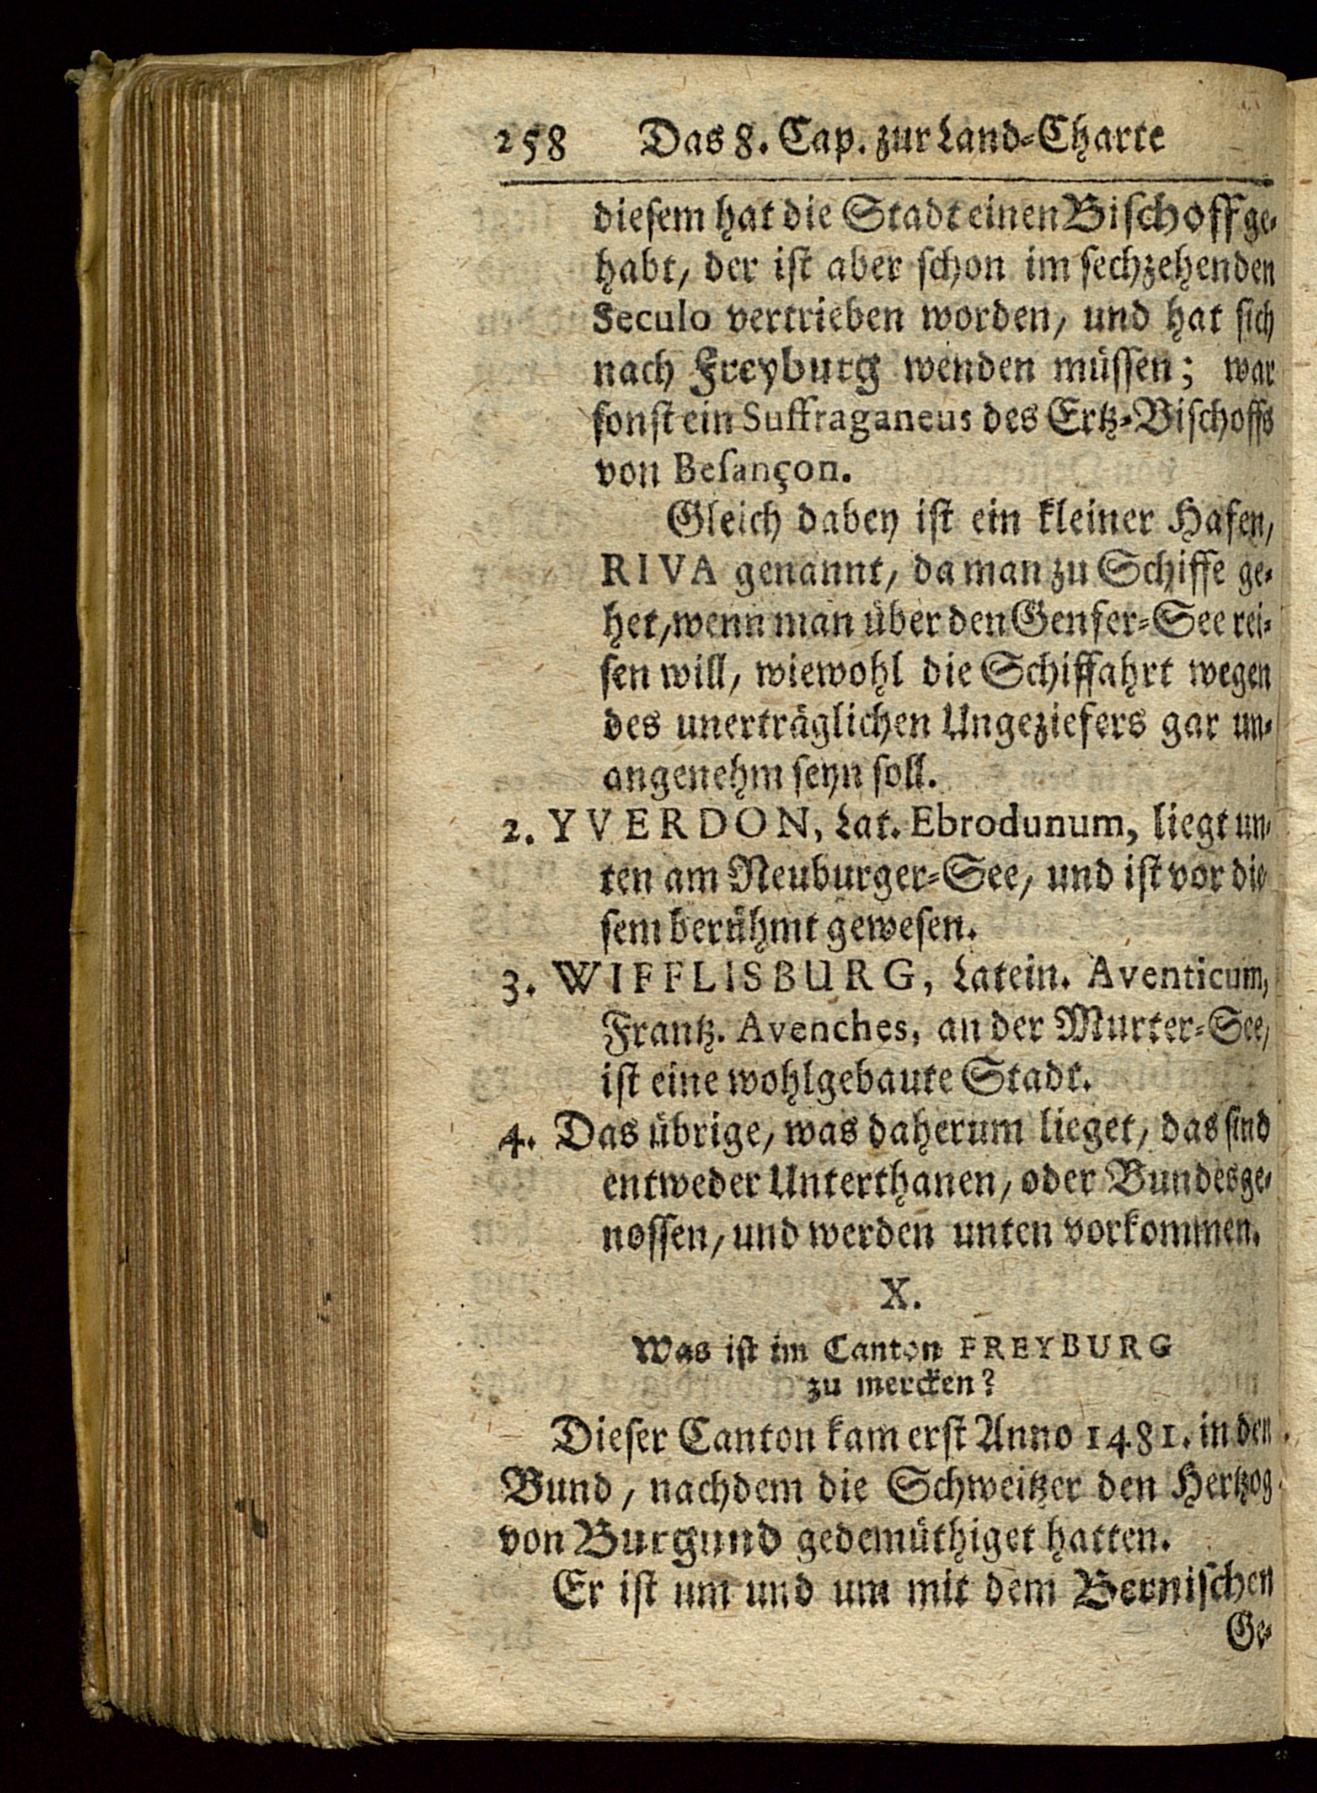 258 Das 8. Cap. zur Land-Charte
diesem hat die Stadt einen Bischoff ge-
habt, der ist aber schon im sechzehenden
Seculo vertrieben worden, und hat sich
nach Freyburg wenden müssen; war
sonst ein Suffraganeus des Ertz-Bischoffs
von Besançon.
Gleich dabey ist ein kleiner Hafen,
RIVA genannt, da man zu Schiffe ge-
het, wenn man über den Genfer-See rei-
sen will, wiewohl die Schiffahrt wegen
des unerträglichen Ungeziefers gar un-
angenehm seyn soll.
2. YVERDON, Lat. Ebrodunum, liegt un-
ten am Neuburger-See, und ist vor die
sem berühmt gewesen.
3. WIFFLISBURG, Latein. Aventicum,
Frantz. Avenches, an der Murter-See,
ist eine wohlgebaute Stadt.
4. Das übrige, was daherum lieget, das sind
entweder Unterthanen, oder Bundesge-
nossen, und werden unten vorkommen.
X.
Was ist im Canton FREYBURG
zu mercken?
Dieser Canton kam erst Anno 1481. in den
Bund, nachdem die Schweitzer den Hertzog
von Burgund gedemüthiget hatten.
Er ist um und um mit dem Bernischen
Ge-